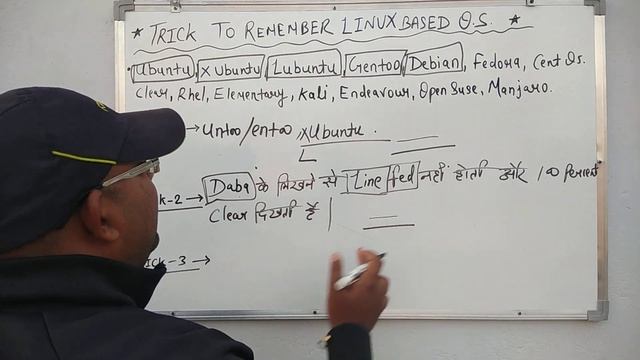 ★ TRICK TO REMEMBER LINUX BASED O.S. ★
Ubuntu, XUbuntu, Lubuntu, Gentoo, Debian, Fedora, Cent Os.
Clear, Rhel, Elementary, Kali, Endeavour, Open Suse, Manjaro.
→ Untoo/entoo, XUbuntu.
k-2 → Daba के लिखने से Line fed नहीं होती और 100 Percent
Clear दिखती है |
ICK-3 →